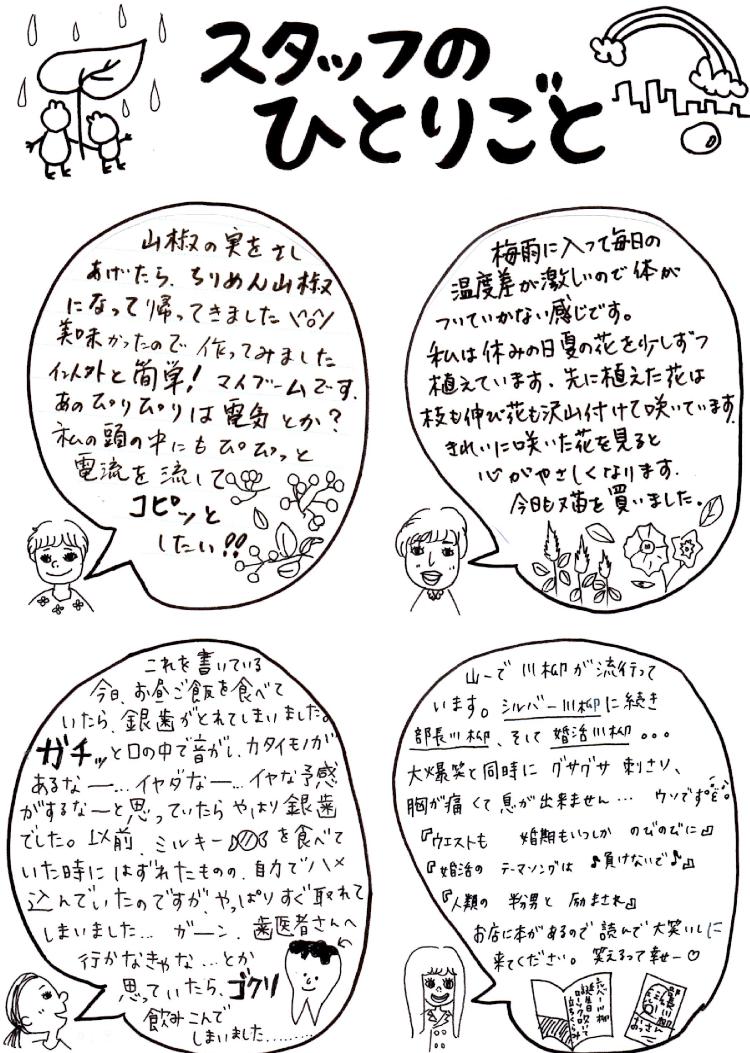 スタッフの
ひとりごと
山椒の実をさし
あげたら、ちりめん山椒
になって帰ってきました\^o^/
美味かったので 作ってみました
イントカト簡単! マイブームです.
あのぴりぴりは電気とか?
私の頭の中にもぴぴっと
電流を流して
コピッと
したい!!
梅雨に入って毎日の
温度差が激しいので体が
ついていかない感じです。
私は休みの日夏の花を少しずつ
植えています.先に植えた花は
枝も伸び花も沢山付けて咲いています.
きれいに咲いた花を見ると
心がやさしくなります.
今日も又苗を買いました。
これを書いている
今日、お昼ご飯を食べて
いたら、銀歯がとれてしまいました。
ガチッと口の中で音がし、カタイモノが
あるなー…イヤダなー…イヤな予感
がするなーと思っていたら やはり銀歯
でした。以前、ミルキーを食べて
いた時にはずれたものの、自力でハメ
込んでいたのですが、やっぱりすぐ取れて
しまいました… ガーン. 歯医者さんへ
行かなきゃな…とか
思っていたら、ゴクリ
飲みこんで
しまいました………
山一で 川柳が流行って
います。シルバー川柳に続き
部長川柳、そして婚活川柳。。。
大爆笑と同時に グサグサ 刺さり、
胸が痛くて息が出来ません… ウソです
『ウエストも 婚期もいつしか のびのびに』
『婚活の テーマソングは ♪負けないで♪』
『人類の 半分男と 励まされ』
お店に本があるので 読んで大笑いしに
来てください。笑えるって幸せー♡
誕生日